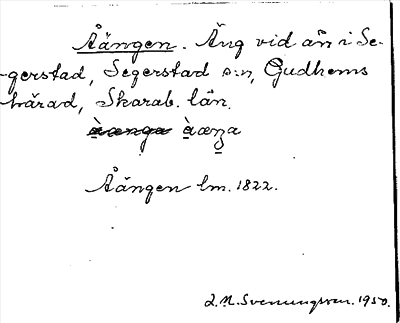 Åängen. Äng vid ån i Se-
gerstad, Segerstad s:n, Gudhems
härad, Skarab. län.
àænga àæŋa
Åängen lm. 1822.
L.M. Svenungsson. 1950.